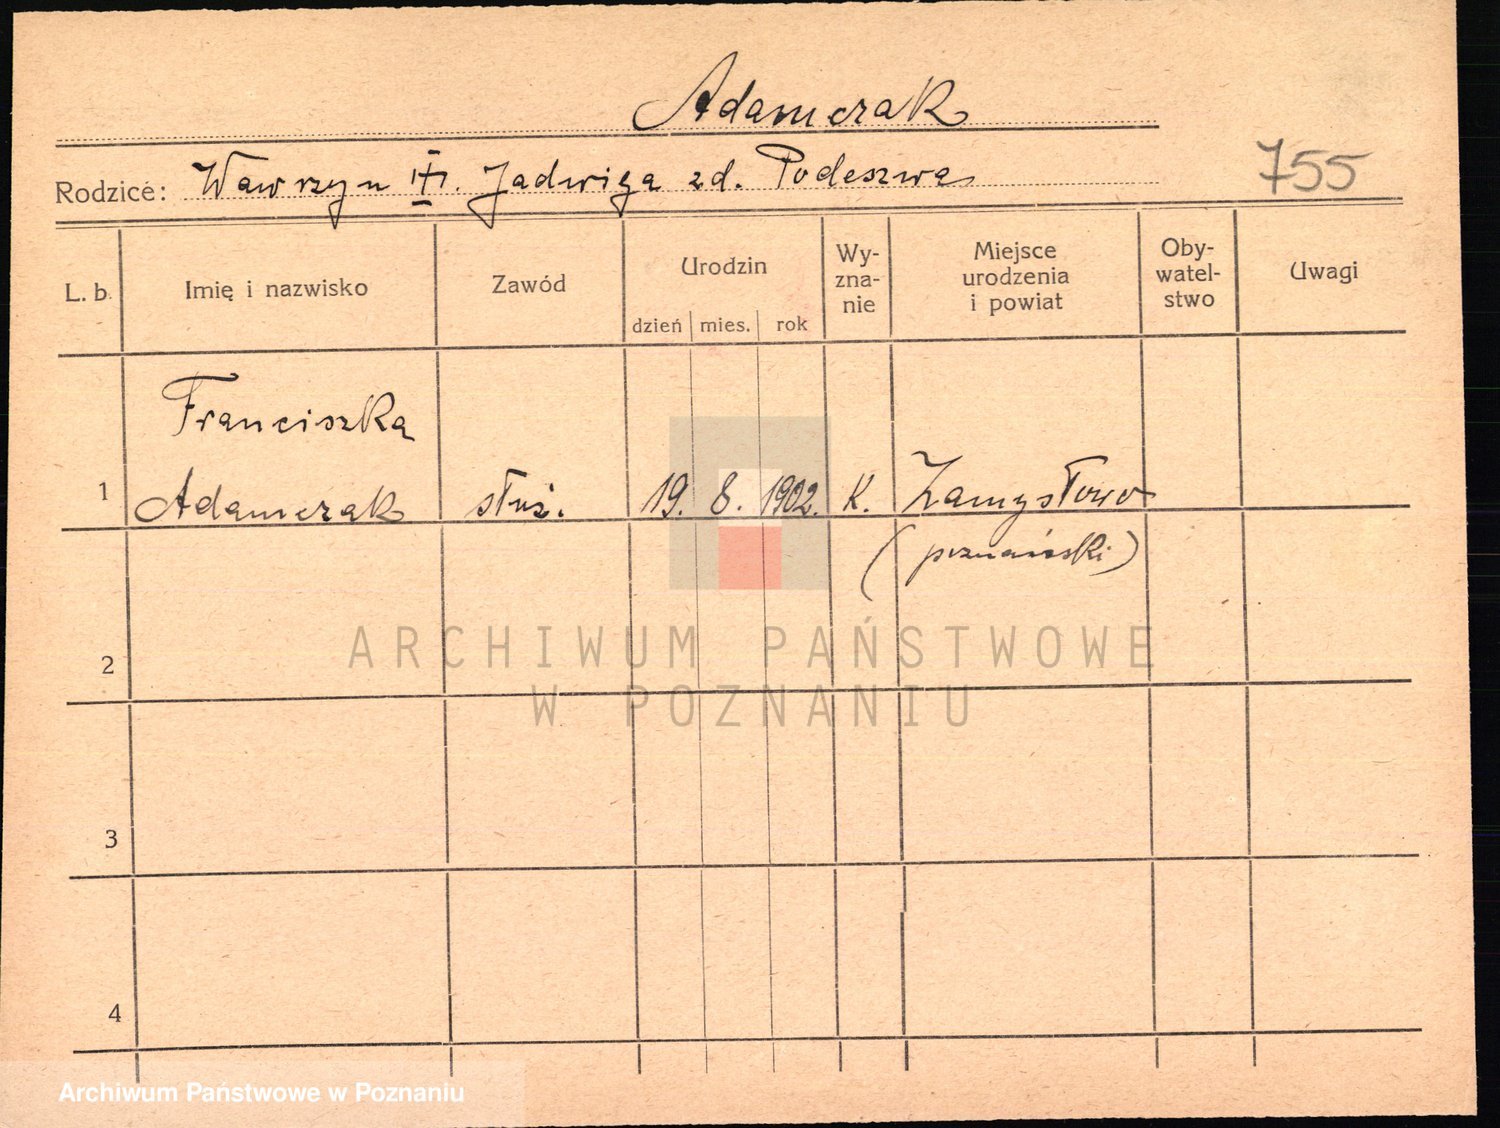 Adamczak
755
Rodzice: Wawrzyn ┼. Jadwiga zd. Podeszwa
L. b. Imię i nazwisko Zawód Urodzin Wy-zna-nie Miejsce urodzenia i powiat Oby-watel-stwo Uwagi
dzień mies. rok
Franciszka
1 Adamczak służ. 19. 8. 1902. K. Zamysłowo
(poznański)
2
3
4
ARCHIWUM PAŃSTWOWE
W POZNANIU
Archiwum Państwowe w Poznaniu